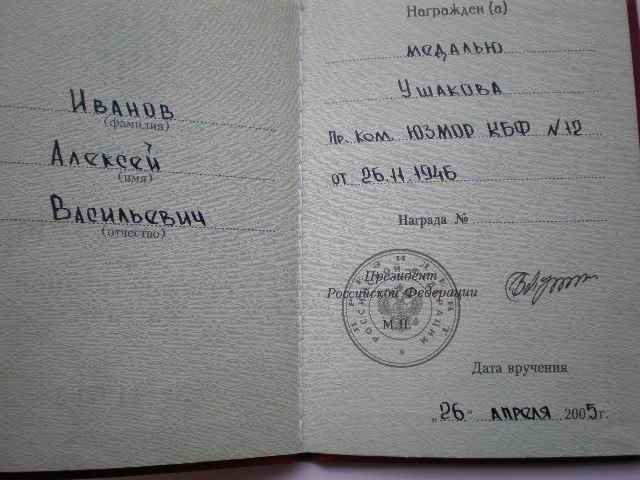 Иванов
(фамилия)
Алексей
(имя)
Васильевич
(отчество)
Награжден (а)
медалью
Ушакова
Пр. ком. ЮЗМОР КБФ №12
от 26.11.1946
Награда №
Президент
Российской Федерации
М.П.
ПРЕЗИДЕНТ
РОССИЙСКОЙ ФЕДЕРАЦИИ
Дата вручения
„26“ апреля 2005г.